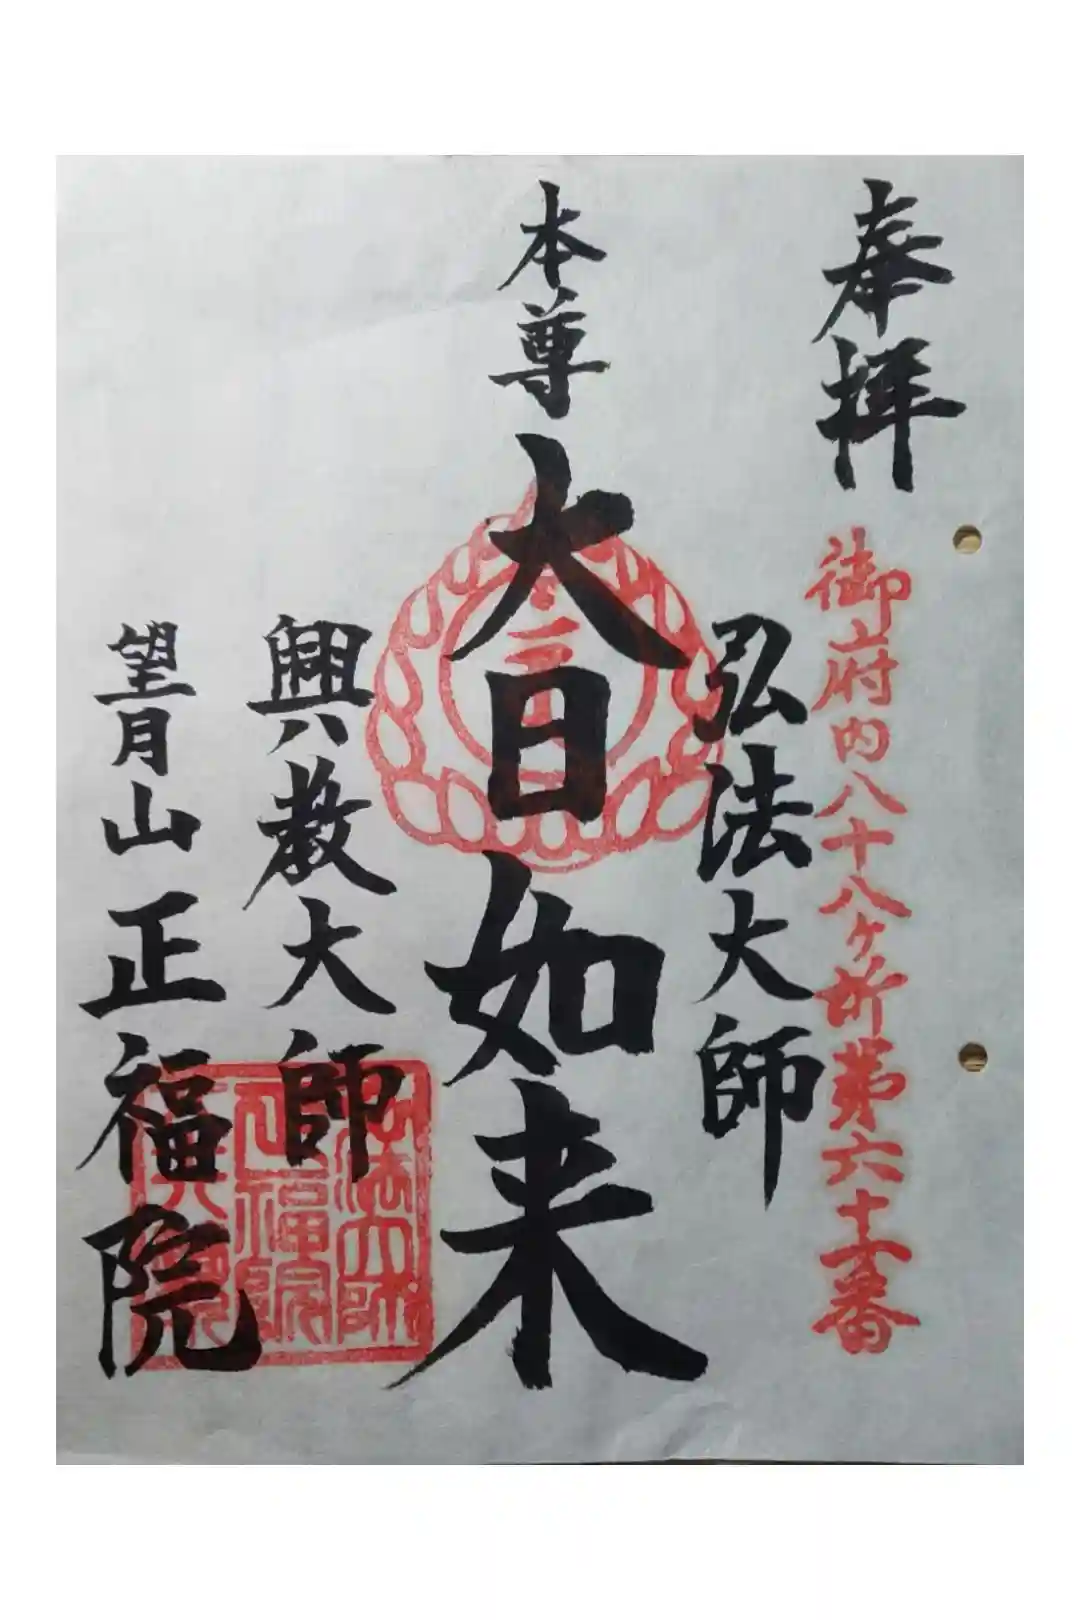 奉拝
御府内八十八ヶ所第六十一番
弘法大師
本尊
大日如来
興教大師
望月山正福院
弘法大師
正福院